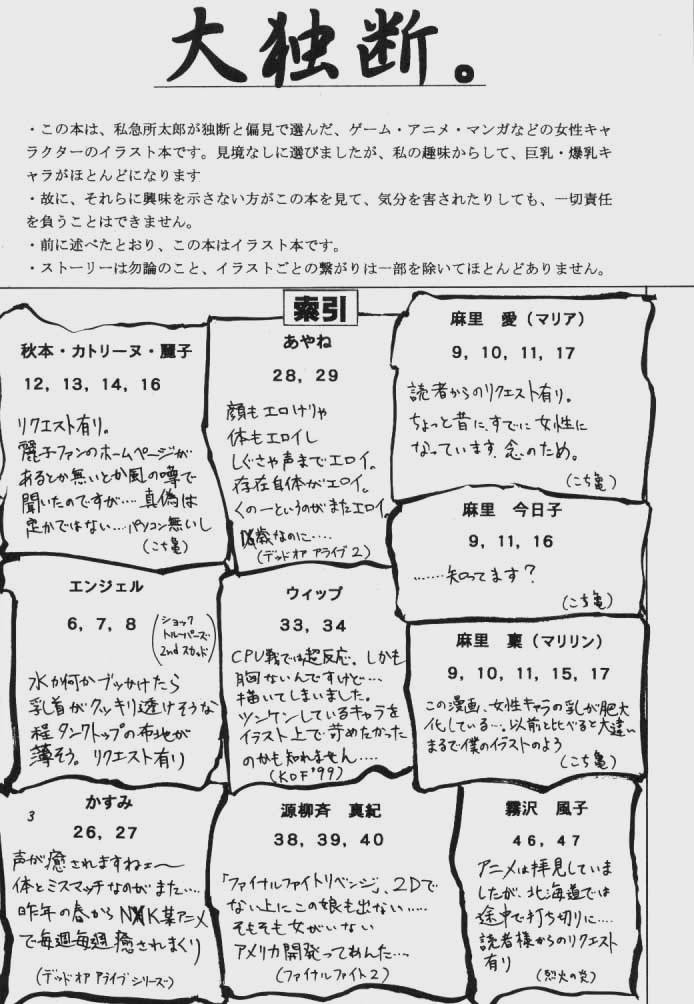 大独断。
・この本は、私急所太郎が独断と偏見で選んだ、ゲーム・アニメ・マンガなどの女性キャ
ラクターのイラスト本です。見境なしに選びましたが、私の趣味からして、巨乳・爆乳キ
ャラがほとんどになります
・故に、それらに興味を示さない方がこの本を見て、気分を害されたりしても、一切責任
を負うことはできません。
・前に述べたとおり、この本はイラスト本です。
・ストーリーは勿論のこと、イラストごとの繋がりは一部を除いてほとんどありません。
索引
秋本・カトリーヌ・麗子
12, 13, 14, 16
リクエスト有り。
麗子ファンのホームページが
あるとか無いとか風の噂で
聞いたのですが…. 真偽は
定かではない…パソコン無いし
(こち亀)
あやね
28, 29
顔もエロけりゃ
体もエロイし
しぐさや声までエロイ。
存在自体がエロイ。
くの一というのがまたエロイ。
歳なのに….
(デッド オア アライブ 2)
麻里 愛(マリア)
9, 10, 11, 17
読者からのリクエスト有り。
ちょっと昔に、すでに女性に
なっています。念のため。
(こち亀)
麻里 今日子
9, 11, 16
……知ってます?
(こち亀)
エンジェル
6, 7, 8
(ショック
トルーパーズ
2nd スカッド)
水か何かブッかけたら
乳首がクッキリ透けそうな
程タンクトップの布地が
薄そう。リクエスト有り
ウィップ
33, 34
CPU戦では超反応。しかも
胸ないんですけど…
描いてしまいました。
ツンケンしているキャラを
イラスト上で苛めたかった
のかも知れません….
(KOF'99)
麻里 稟(マリリン)
9, 10, 11, 15, 17
この漫画、女性キャラの乳が肥大
化している…。以前と比べると大違い
まるで僕のイラストのよう
(こち亀)
3
かすみ
26, 27
声が癒されますねェ〜
体とミスマッチなのがまた….
昨年の春からNXK某アニメ
で毎週毎週癒されまくり
(デッド オア アライブ シリーズ)
源柳斉 真紀
38, 39, 40
「ファイナルファイトリベンジ」、2Dで
ない上にこの娘も出ない……
そもそも女がいない
アメリカ開発ってあんた…。
(ファイナルファイト2)
霧沢 風子
46, 47
アニメは拝見していま
したが、北海道では
途中で打ち切りに….
読者様からのリクエスト
有り
(烈火の炎)